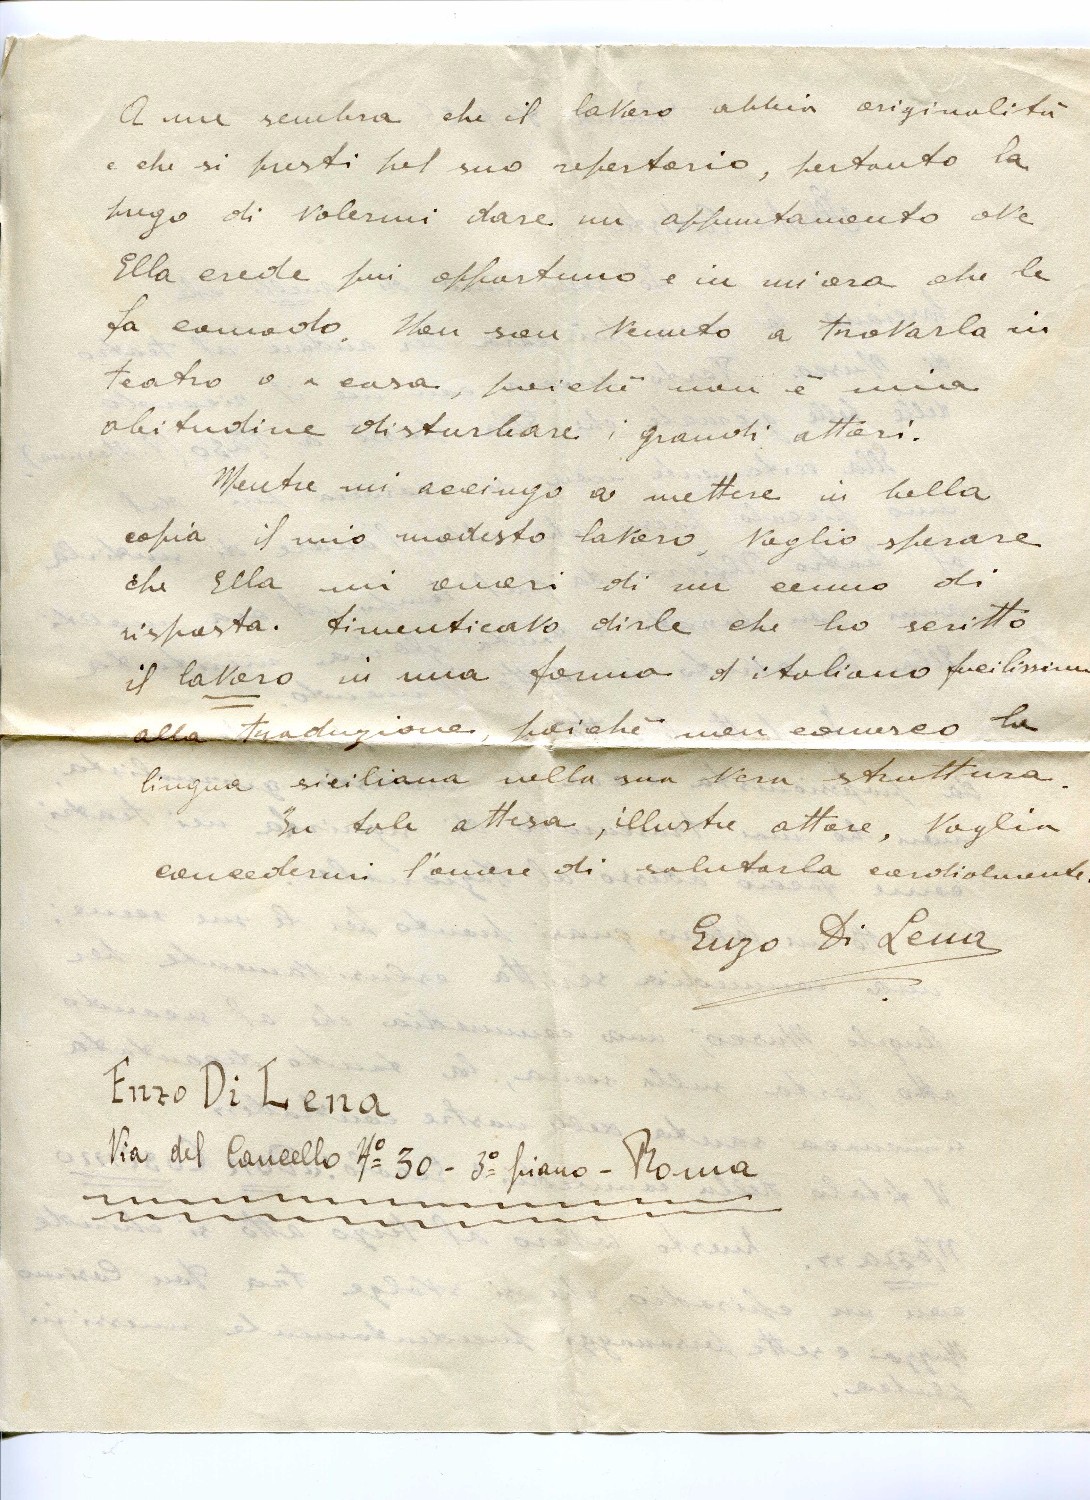 A me sembra che il lavoro abbia originalità
e che si presti pel suo repertorio, pertanto la
prego di volermi dare un appuntamento ove
Ella crede più opportuno e in un'ora che le
fa comodo. Non son venuto a trovarla in
teatro o a casa, poichè non è mia
abitudine disturbare i grandi attori.
Mentre mi accingo a mettere in bella
copia il mio modesto lavoro, voglio sperare
che Ella mi onori di un cenno di
risposta. Dimenticavo dirle che ho scritto
il lavoro in una forma d'italiano facilissima
alla traduzione, poichè non conosco la
lingua siciliana nella sua vera struttura.
In tale attesa, illustre attore, voglia
concedermi l'onore di salutarla cordialmente.
Enzo Di Lena
Enzo Di Lena
Via del Cancello Nº 30 - 3º piano - Roma